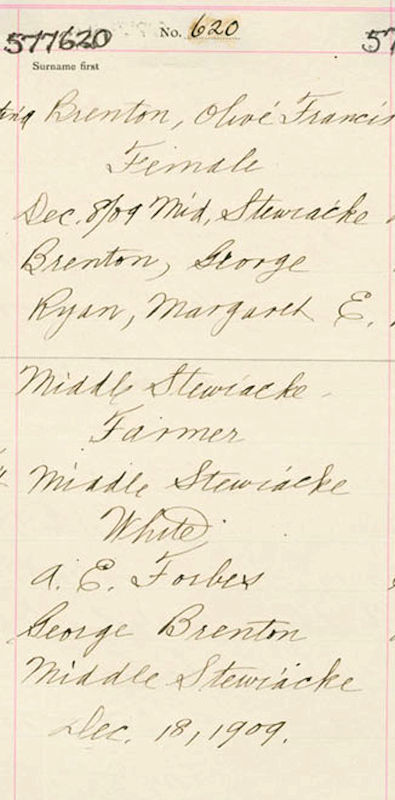 577620 No. 620 57
Surname first
Brenton, Olive Francis
Female
Dec. 8/09 Mid, Stewiacke
Brenton, George
Ryan, Margaret E.
Middle Stewiacke
Farmer
Middle Stewiacke
White
A. E. Forbes
George Brenton
Middle Stewiacke
Dec. 18, 1909.